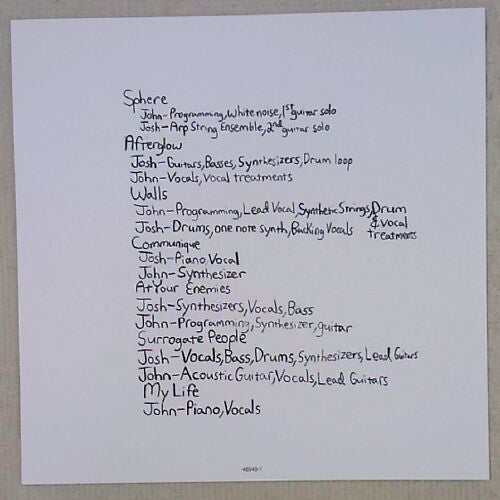 Sphere
John-Programming, White noise, 1st guitar solo
Josh-Arp String Ensemble, 2nd guitar solo
Afterglow
Josh-Guitars, Basses, Synthesizers, Drum loop
John-Vocals, Vocal treatments
Walls
John-Programming, Lead Vocal, Synthetic Strings, Drum & vocal treatments
Josh-Drums, one note synth, Backing Vocals
Communique
Josh-Piano, Vocal
John-Synthesizer
At Your Enemies
Josh-Synthesizers, Vocals, Bass
John-Programming, Synthesizer, guitar
Surrogate People
Josh-Vocals, Bass, Drums, Synthesizers, Lead Guitars
John-Acoustic Guitar, Vocals, Lead Guitars
My Life
John-Piano, Vocals